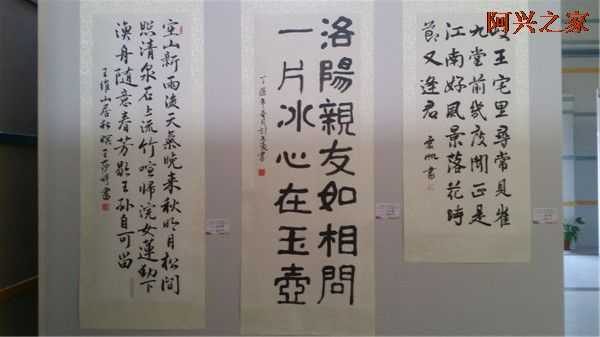 阿兴之家
空山新雨後天氣晚來秋明月松間
照清泉石上流竹喧歸浣女蓮動下
漁舟隨意春芳歇王孫自可留
王維山居秋暝王莎莎書
洛陽親友如相問
一片冰心在玉壺
丁酉年春月書
王宅里尋常見崔
九堂前幾度聞正是
江南好風景落花時
節又逢君 書